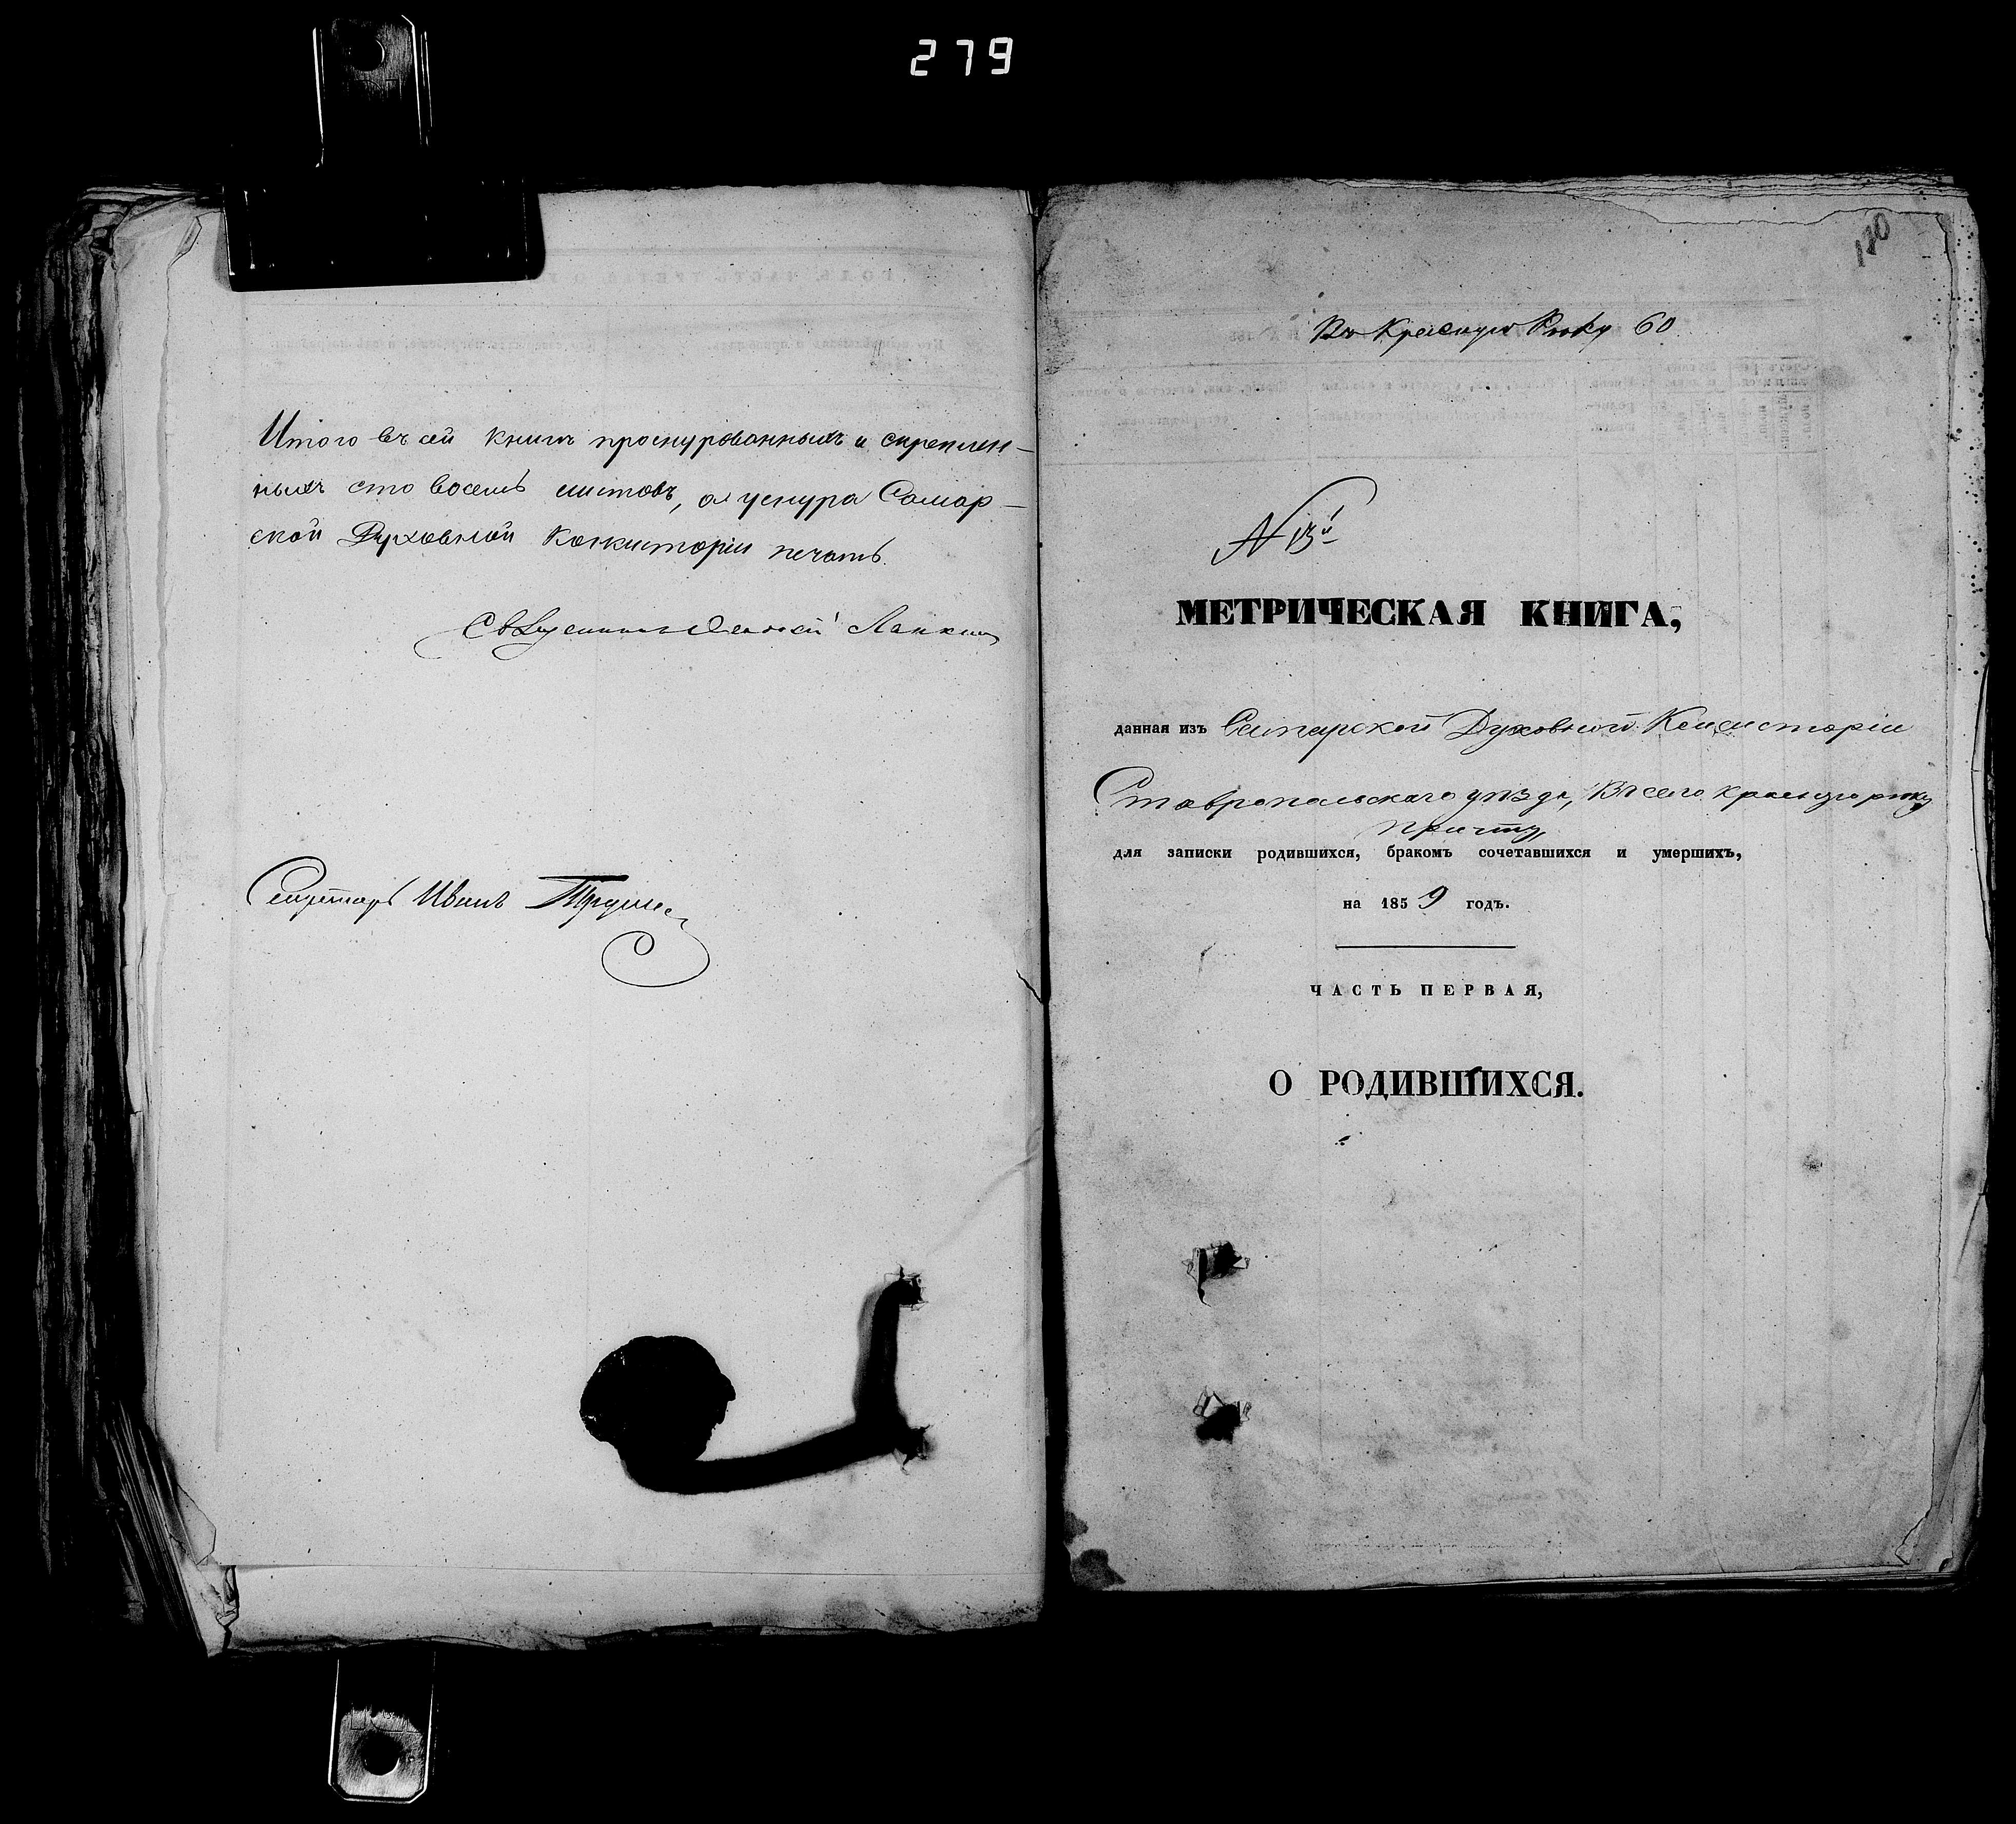 279
Итого въ сей книгѣ прошнурованныхъ и скреплен-
ныхъ сто восемь листовъ, а у шнура Самар-
ской Духовной Консисторіи печать.
Секретарь Иванъ
180
Въ Красную Рѣку 60
N 13й
МЕТРИЧЕСКАЯ КНИГА,
данная изъ Самарской Духовной Консисторіи
Ставропольскаго уѣзда, Въ село Красную рѣку
причту
для записки родившихся, бракомъ сочетавшихся и умершихъ,
на 1859 годъ.
ЧАСТЬ ПЕРВАЯ,
О РОДИВШИХСЯ.